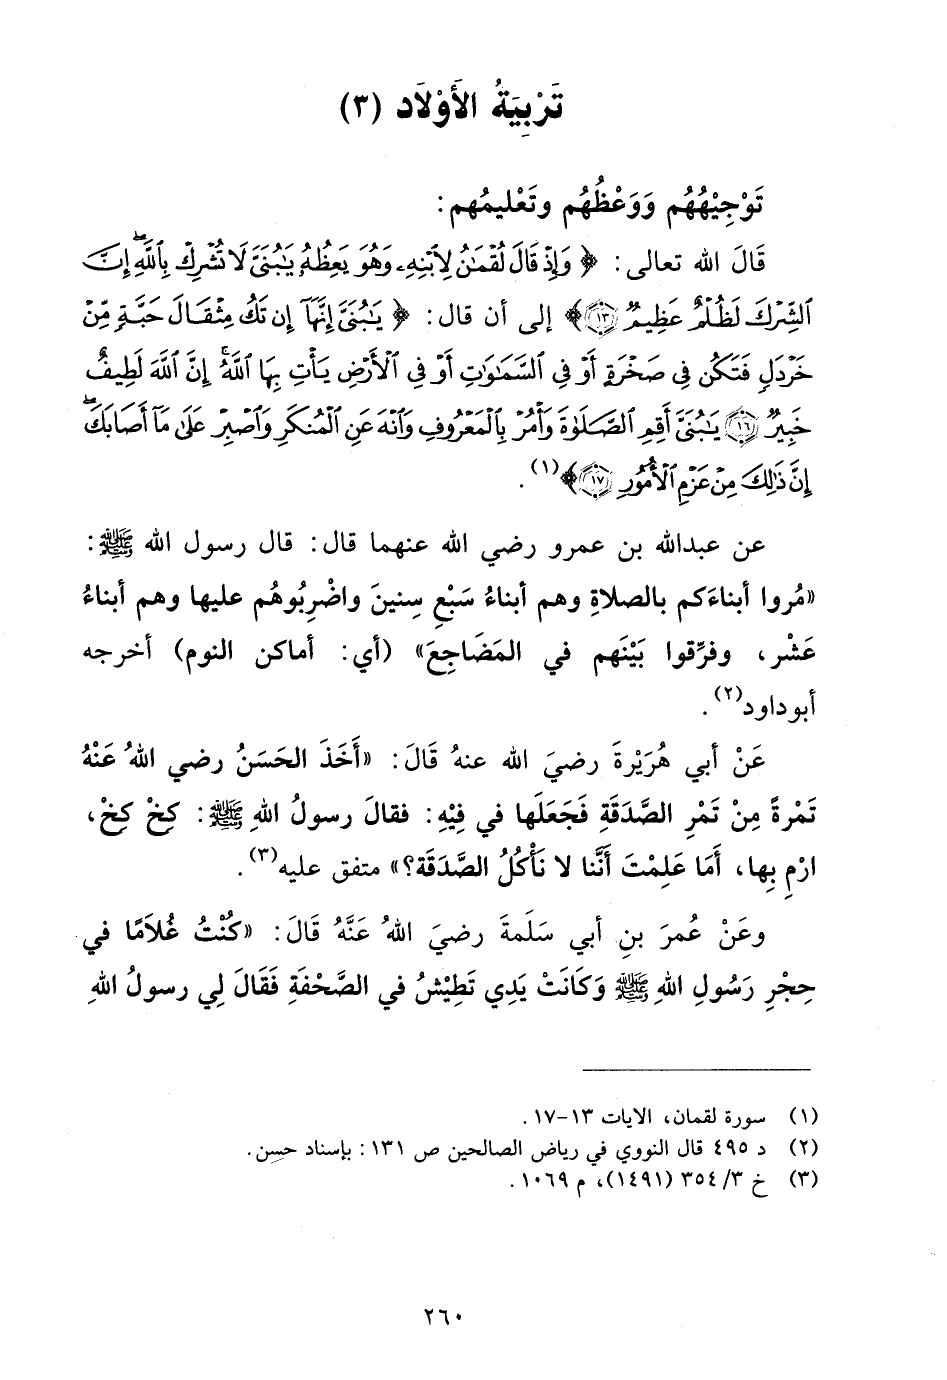 تَرْبِيَةُ الأَوْلَاد (٣)
تَوْجِيْهُهُم وَوَعْظُهُم وتَعْليمُهم:
قَالَ الله تعالى: ﴿ وَإِذْ قَالَ لُقْمَٰنُ لِٱبْنِهِۦ وَهُوَ يَعِظُهُۥ يَٰبُنَىَّ لَا تُشْرِكْ بِٱللَّهِۖ إِنَّ
ٱلشِّرْكَ لَظُلْمٌ عَظِيمٌ ١٣﴾ إلى أن قال: ﴿ يَٰبُنَىَّ إِنَّهَآ إِن تَكُ مِثْقَالَ حَبَّةٍ مِّنْ
خَرْدَلٍ فَتَكُن فِى صَخْرَةٍ أَوْ فِى ٱلسَّمَٰوَٰتِ أَوْ فِى ٱلْأَرْضِ يَأْتِ بِهَا ٱللَّهُۚ إِنَّ ٱللَّهَ لَطِيفٌ
خَبِيرٌ ١٦ يَٰبُنَىَّ أَقِمِ ٱلصَّلَوٰةَ وَأْمُرْ بِٱلْمَعْرُوفِ وَٱنْهَ عَنِ ٱلْمُنكَرِ وَٱصْبِرْ عَلَىٰ مَآ أَصَابَكَۖ
إِنَّ ذَٰلِكَ مِنْ عَزْمِ ٱلْأُمُورِ ١٧﴾(١).
عن عبدالله بن عمرو رضي الله عنهما قال: قال رسول الله ﷺ:
«مُروا أبناءَكم بالصلاةِ وهم أبناءُ سَبْعِ سِنينَ واضْرِبُوهُم عليها وهم أبناءُ
عَشْر، وفرِّقوا بَيْنَهم في المَضَاجِعَ» (أي: أماكن النوم) أخرجه
أبوداود(٢).
عَنْ أبي هُرَيْرةَ رضيَ الله عنهُ قَالَ: «أَخَذَ الحَسَنُ رضي اللهُ عَنْهُ
تَمْرةً مِنْ تَمْرِ الصَّدَقَةِ فَجَعَلَها في فِيْهِ: فقالَ رسولُ اللهِ ﷺ: كِخْ كِخْ،
ارْمِ بِها، أَمَا عَلِمْتَ أَنَّنا لا نَأْكُلُ الصَّدَقَة؟» متفق عليه(٣).
وعَنْ عُمرَ بنِ أبي سَلَمةَ رضيَ اللهُ عَنَّهُ قَالَ: «كُنْتُ غُلاَمًا في
حِجْرِ رَسُولِ اللهِ ﷺ وَكَانَتْ يَدِي تَطِيْشُ في الصَّحْفَةِ فَقَالَ لِي رسولُ اللهِ
(١) سورة لقمان، الايات ١٣-١٧.
(٢) د ٤٩٥ قال النووي في رياض الصالحين ص ١٣١: بإسناد حسن.
(٣) خ ٣/ ٣٥٤ (١٤٩١)، م ١٠٦٩.
٢٦٠